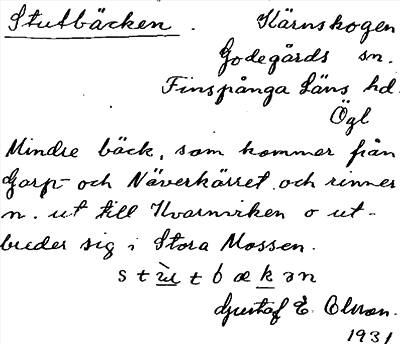 Stutbäcken. Kärnskogen
Godegårds sn.
Finspånga Läns hd.
Ögl
Mindre bäck, som kommer från
Garp- och Näverkärret och rinner
n. ut till Kvarnviken o ut-
breder sig i Stora Mossen.
stu̇tbækən
Gustaf E. Olsson.
1931